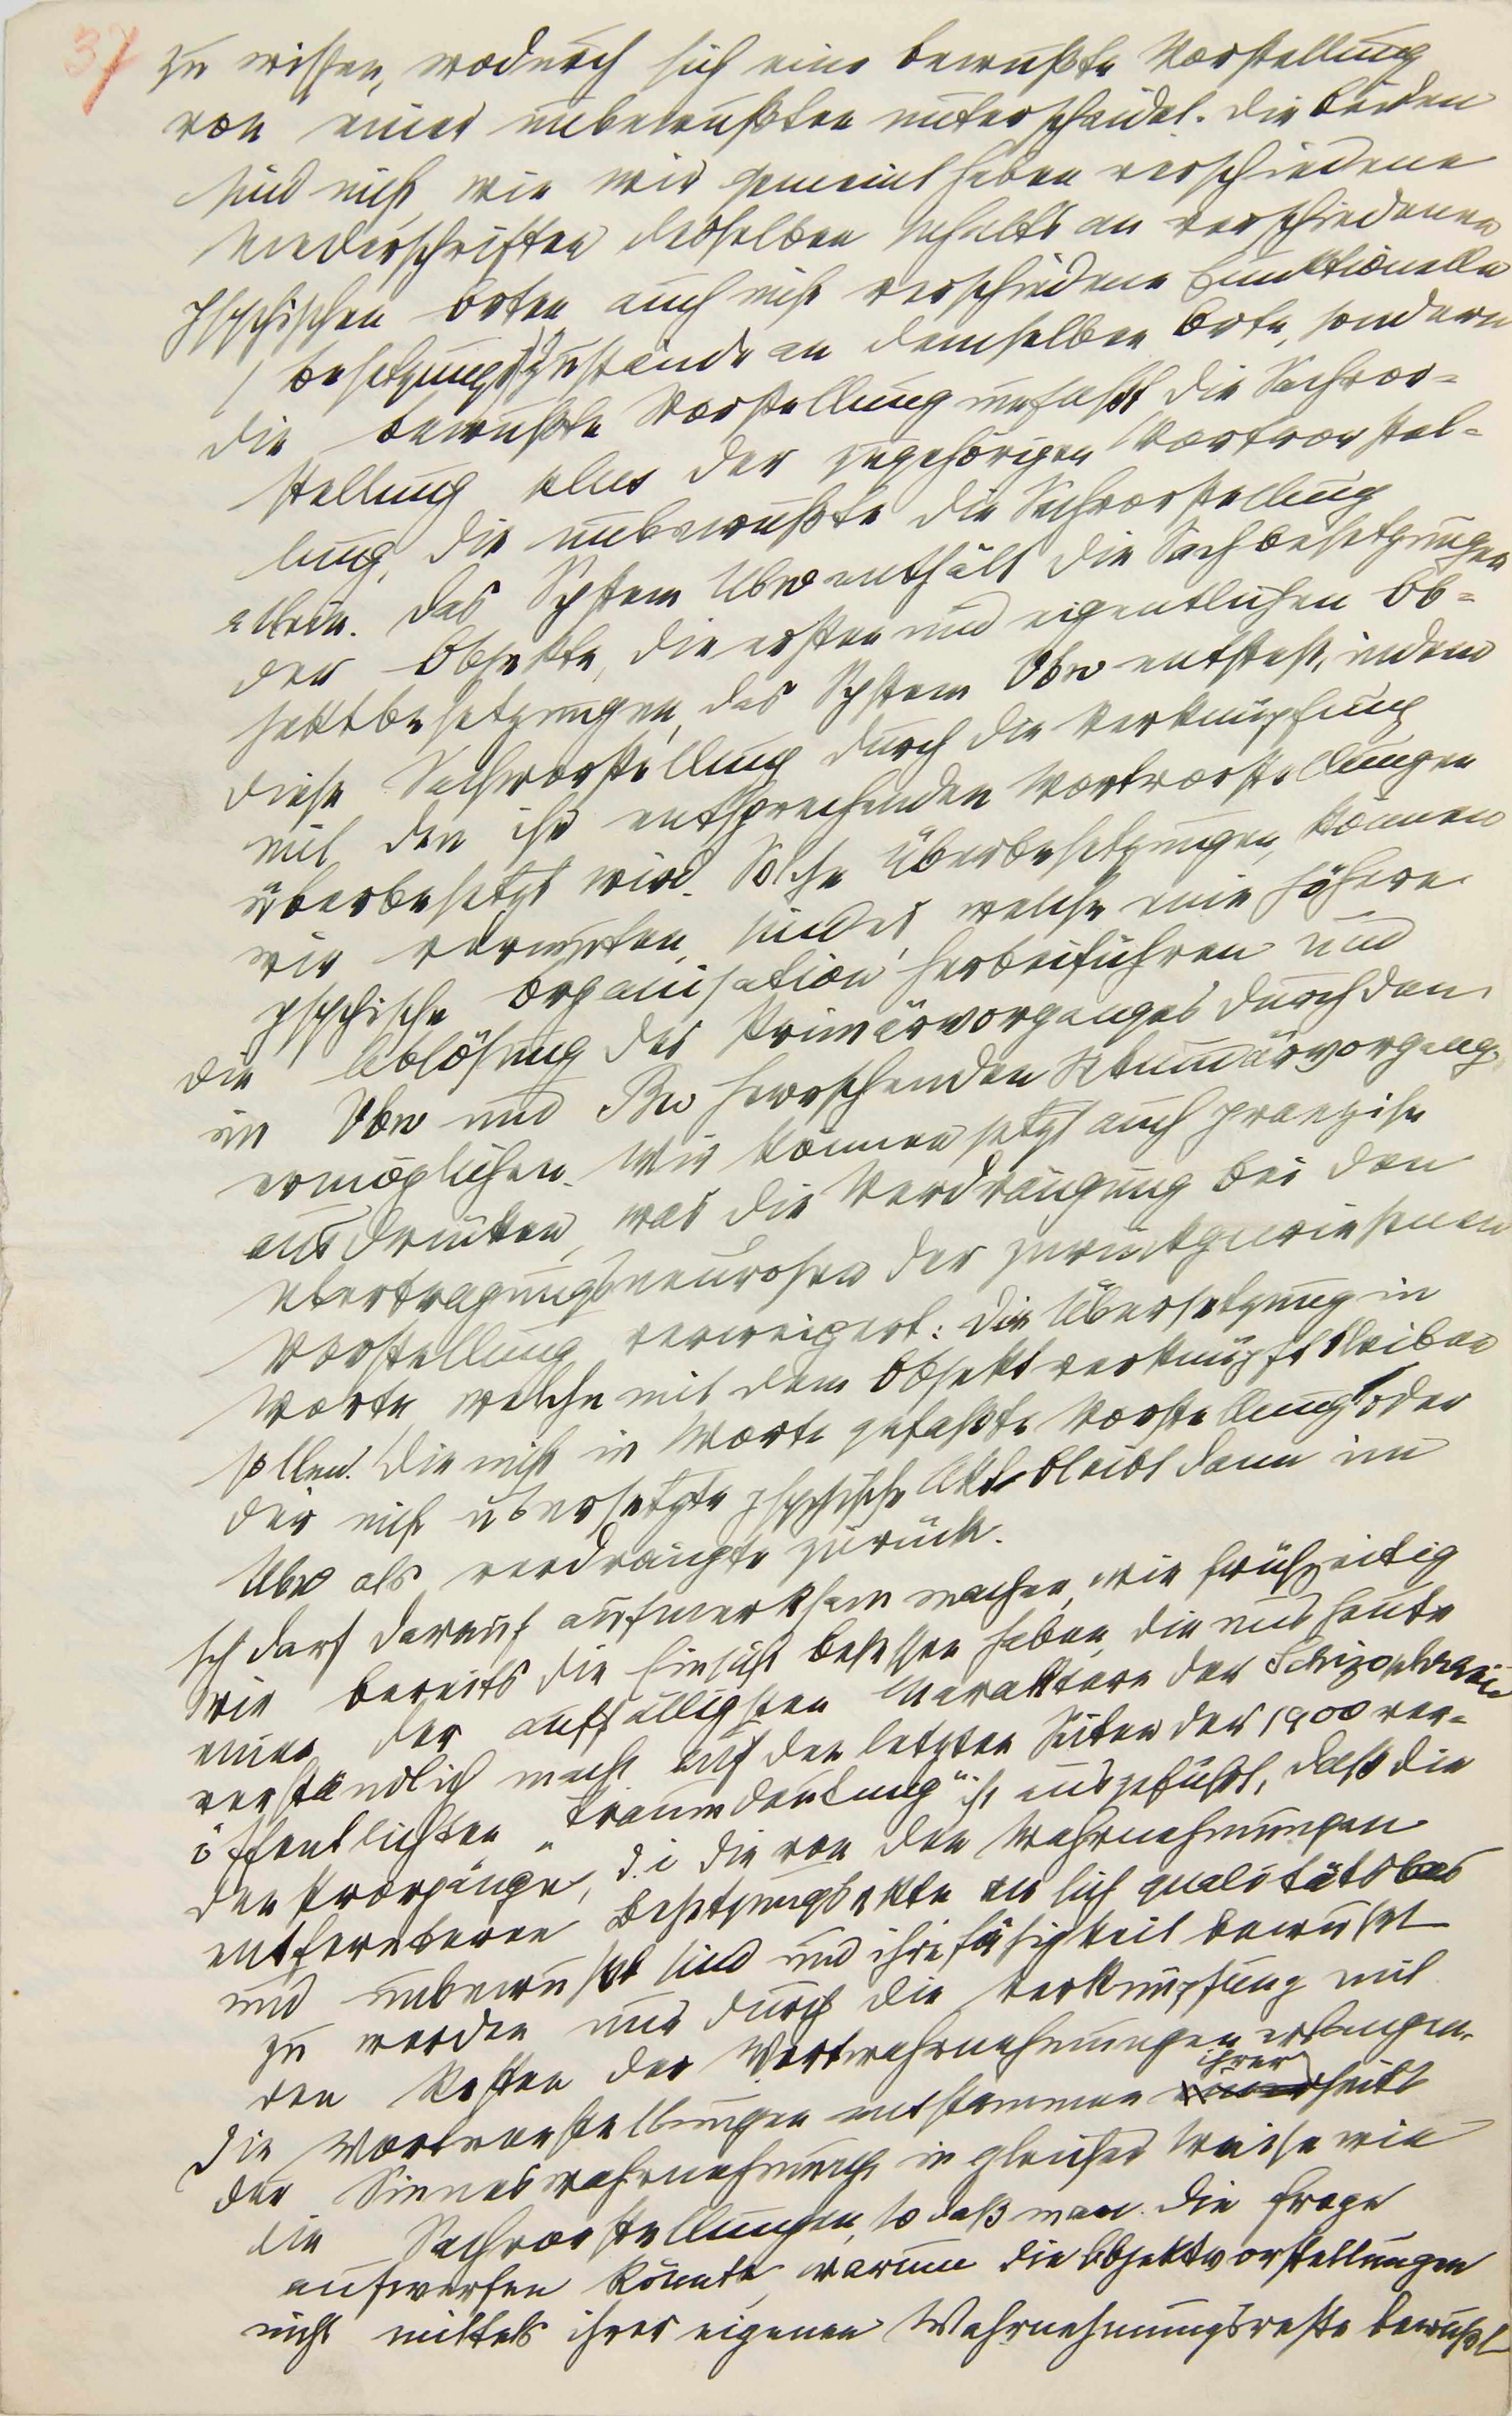 37
zu wissen, wodurch sich eine bewußte Vorstellung
von einer unbewußten unterscheidet. Die beiden
sind nicht wie wir gemeint haben verschiedene
Niederschriften desselben Inhalts an verschiedenen
psychischen Orten auch nicht verschiedene funktionelle
Besetzungszustände an demselben Orte, sondern
die bewußte Vorstellung umfaßt die Sachvor=
stellung plus der zugehörigen Wortvorstel=
lung, die unbewußte die Sachvorstellung
allein. Das System Ubw enthält die Sachbesetzungen
der Objekte, die ersten und eigentlichen Ob=
jektbesetzungen, das System Vbw entsteht, indem
diese Sachvorstellung durch die Verknüpfung
mit den ihr entsprechenden Wortvorstellungen
überbesetzt wird. Solche Überbesetzungen, können
wir vermuten, sind es, welche eine höhere
psychische Organisation herbeiführen und
die Ablösung des Primärvorganges durch den
im Vbw und Bw herrschenden Sekundärvorgang
ermöglichen. Wir können jetzt auch praezise
ausdrücken, was die Verdrängung bei den
Übertragungsneurosen der zurückgewiesenen
Vorstellung verweigert: Die Übersetzung in
Worte, welche mit dem Objekt verknüpft bleiben
sollen. Die nicht in Worte gefaßte Vorstellung oder
der nicht übersetzte psychische Akt bleibt dann im
Ubw als verdrängt zurück.
Ich darf darauf aufmerksam machen, wie frühzeitig
wir bereits die Einsicht besessen haben, die uns heute
einen der auffälligsten Charaktere der Schizophrenie
verständlich macht. Auf den letzten Seiten der 1900 ver=
öffentlichten „Traumdeutung" ist ausgeführt, daß die
Denkvorgänge, d. i. die von den Wahrnehmungen
entfernteren Besetzungsakte an sich qualitätslos
und unbewußt sind und ihre Fähigkeit bewußt
zu werden nur durch die Verknüpfung mit
den Resten der Wortwahrnehmungen erlangen.
Die Wortvorstellungen entstammen ihrerseits
der Sinneswahrnehmung in gleicher Weise wie
die Sachvorstellungen, so daß man die Frage
aufwerfen könnte, warum die Objektvorstellungen
nicht mittels ihrer eigenen Wahrnehmungsreste bewußt